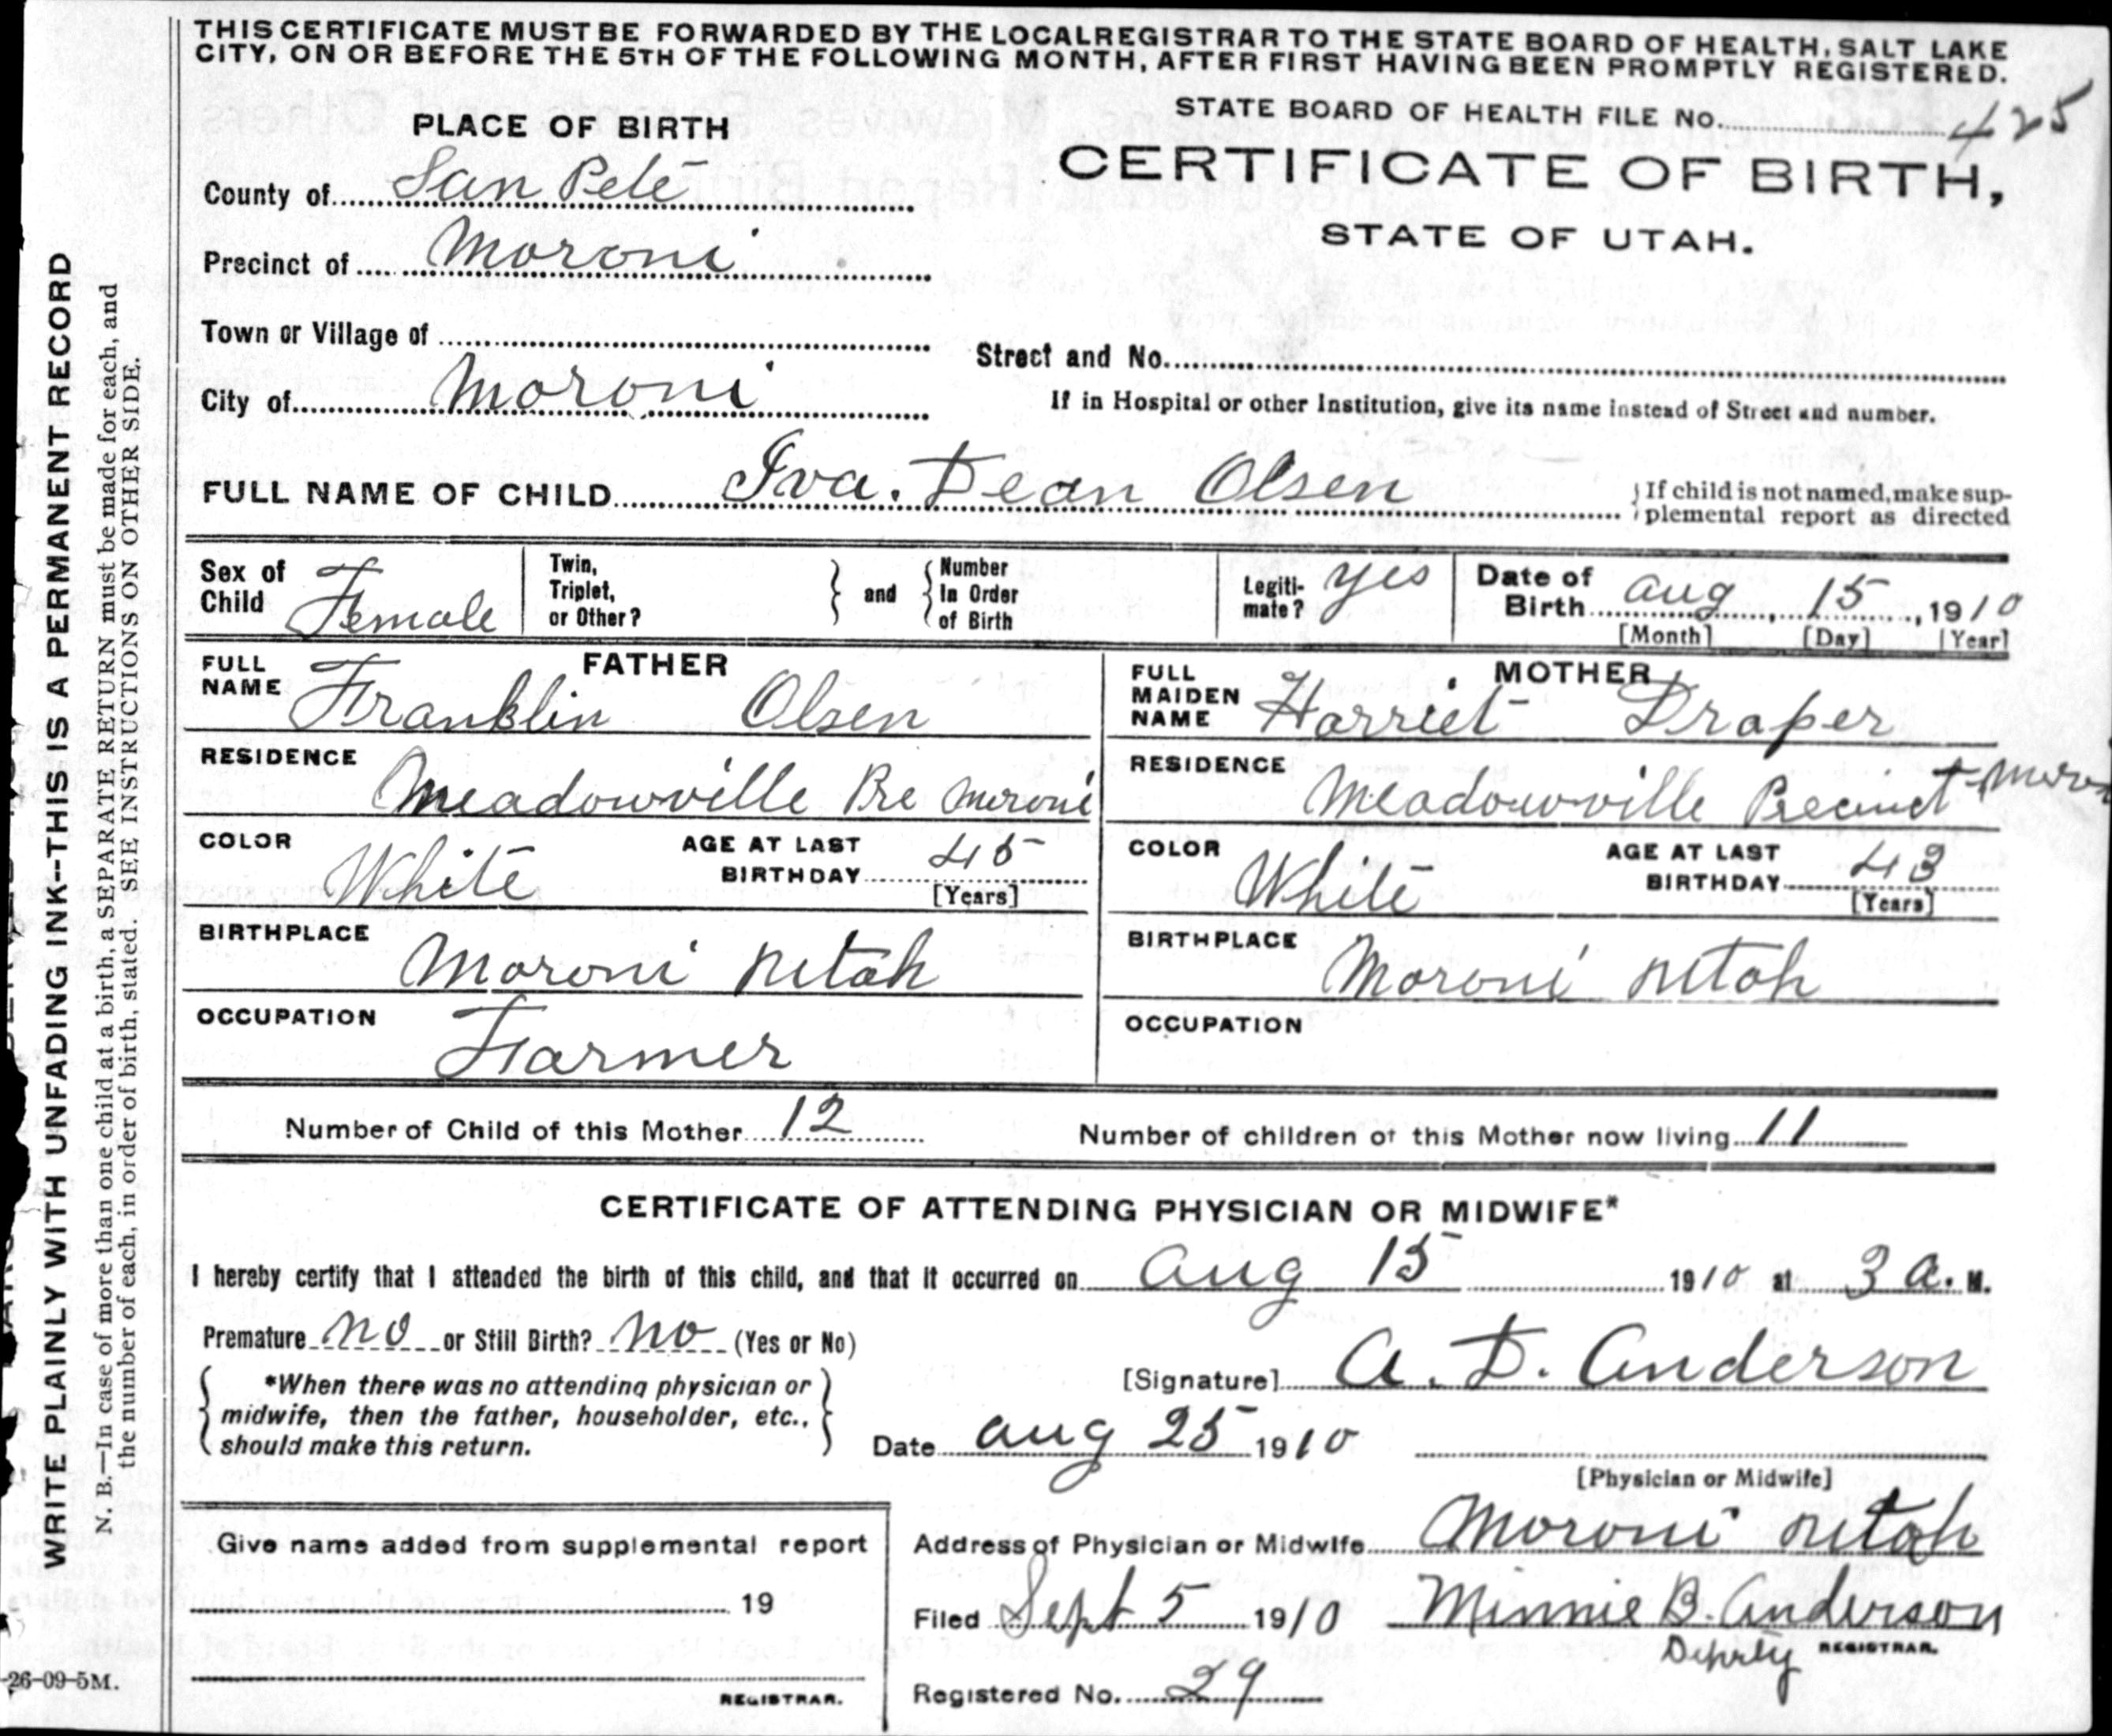 THIS CERTIFICATE MUST BE FORWARDED BY THE LOCAL REGISTRAR TO THE STATE BOARD OF HEALTH, SALT LAKE
CITY, ON OR BEFORE THE 5TH OF THE FOLLOWING MONTH, AFTER FIRST HAVING BEEN PROMPTLY REGISTERED.
STATE BOARD OF HEALTH FILE NO. 425
PLACE OF BIRTH
CERTIFICATE OF BIRTH,
STATE OF UTAH.
County of San Pete
Precinct of Moroni
Town or Village of
Street and No.
City of Moroni
If in Hospital or other Institution, give its name instead of Street and number.
FULL NAME OF CHILD Iva. Dean Olsen
If child is not named, make sup-
plemental report as directed
Sex of Child Female
Twin, Triplet, or Other? and Number In Order of Birth
Legiti-mate? yes
Date of Birth Aug 15, 1910
[Month] [Day] [Year]
FATHER
FULL NAME Franklin Olsen
RESIDENCE Meadowville Pre Moroni
COLOR White
AGE AT LAST BIRTHDAY 45
[Years]
BIRTHPLACE Moroni Utah
OCCUPATION Farmer
MOTHER
FULL MAIDEN NAME Harriet Draper
RESIDENCE Meadowville Precinct
COLOR White
AGE AT LAST BIRTHDAY 43
[Years]
BIRTHPLACE Moroni Utah
OCCUPATION
Number of Child of this Mother 12
Number of children of this Mother now living 11
CERTIFICATE OF ATTENDING PHYSICIAN OR MIDWIFE*
I hereby certify that I attended the birth of this child, and that it occurred on Aug 15 1910 at 3 a. M.
Premature no or Still Birth? no (Yes or No)
*When there was no attending physician or
midwife, then the father, householder, etc.,
should make this return.
[Signature] A. D. Anderson
Date Aug 25 1910
[Physician or Midwife]
Give name added from supplemental report
19
REGISTRAR.
Address of Physician or Midwife Moroni Utah
Filed Sept 5 1910 Minnie B. Anderson
Deputy REGISTRAR.
Registered No. 29
WRITE PLAINLY WITH UNFADING INK--THIS IS A PERMANENT RECORD
N. B.—In case of more than one child at a birth, a SEPARATE RETURN must be made for each, and
the number of each, in order of birth, stated. SEE INSTRUCTIONS ON OTHER SIDE.
-26-09-5M.